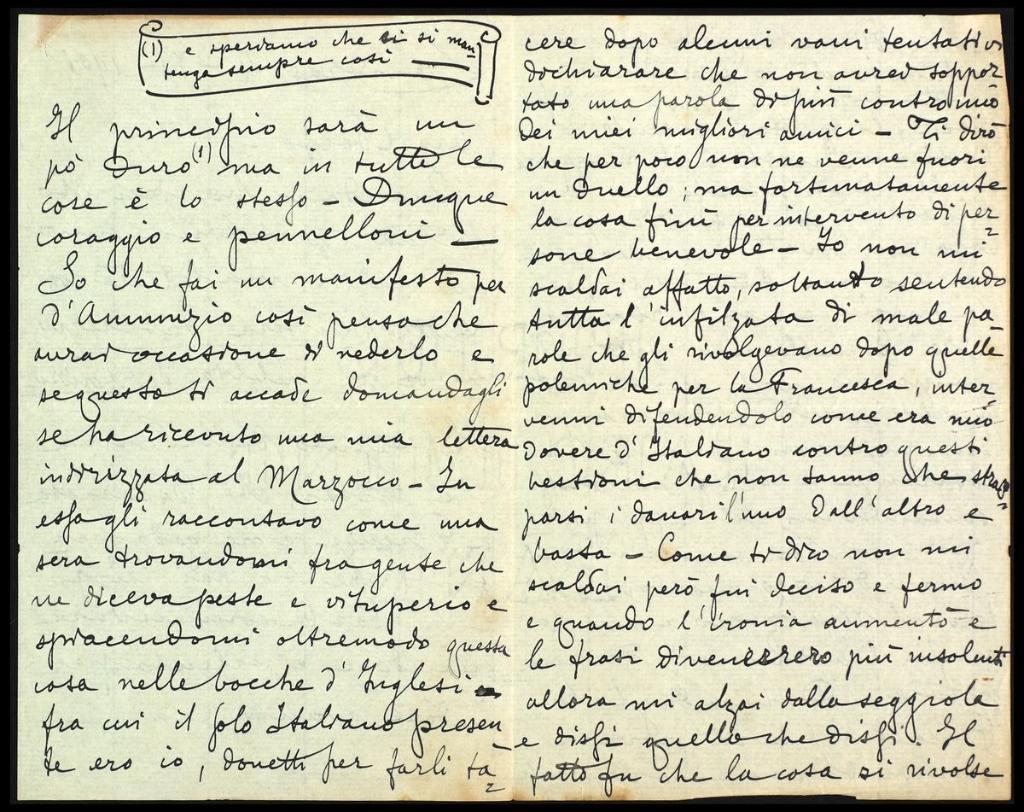 (1) e speriamo che si si man
tenga sempre così —
Il principio sarà un
pò duro (1) ma in tutte le
cose è lo stesso – Dunque
coraggio e pennelloni —
So che fai un manifesto per
d'Annunzio così penso che
avrai occasione di vederlo e
se questo ti accade domandagli
se ha ricevuto una mia lettera
indirizzata al Marzocco – In
essa gli raccontavo come una
sera trovandomi fra gente che
ne diceva peste e vituperio e
spiacendomi oltremodo questa
cosa nelle bocche d'Inglesi
fra cui il solo Italiano presen
te ero io, dovetti per farli ta=
cere dopo alcuni vani tentativi
dichiarare che non avrei soppor
tato una parola di più contro uno
dei miei migliori amici – Ti dirò
che per poco non ne venne fuori
un duello; ma fortunatamente
la cosa finì per intervento di per=
sone benevole – Io non mi
scaldai affatto, soltanto sentendo
tutta l'infilzata di male pa
role che gli rivolgevano dopo quelle
polemiche per la Francesca, inter
venni difendendolo come era mio
dovere d'Italiano contro questi
bestioni che non sanno che strap=
parsi i danari l'uno dall'altro e
basta – Come ti dico non mi
scaldai però fui deciso e fermo
e quando l'ironia aumentò e
le frasi divennero più insolenti
allora mi alzai dalla seggiola
e dissi quello che dissi. Il
fatto fu che la cosa si rivolse